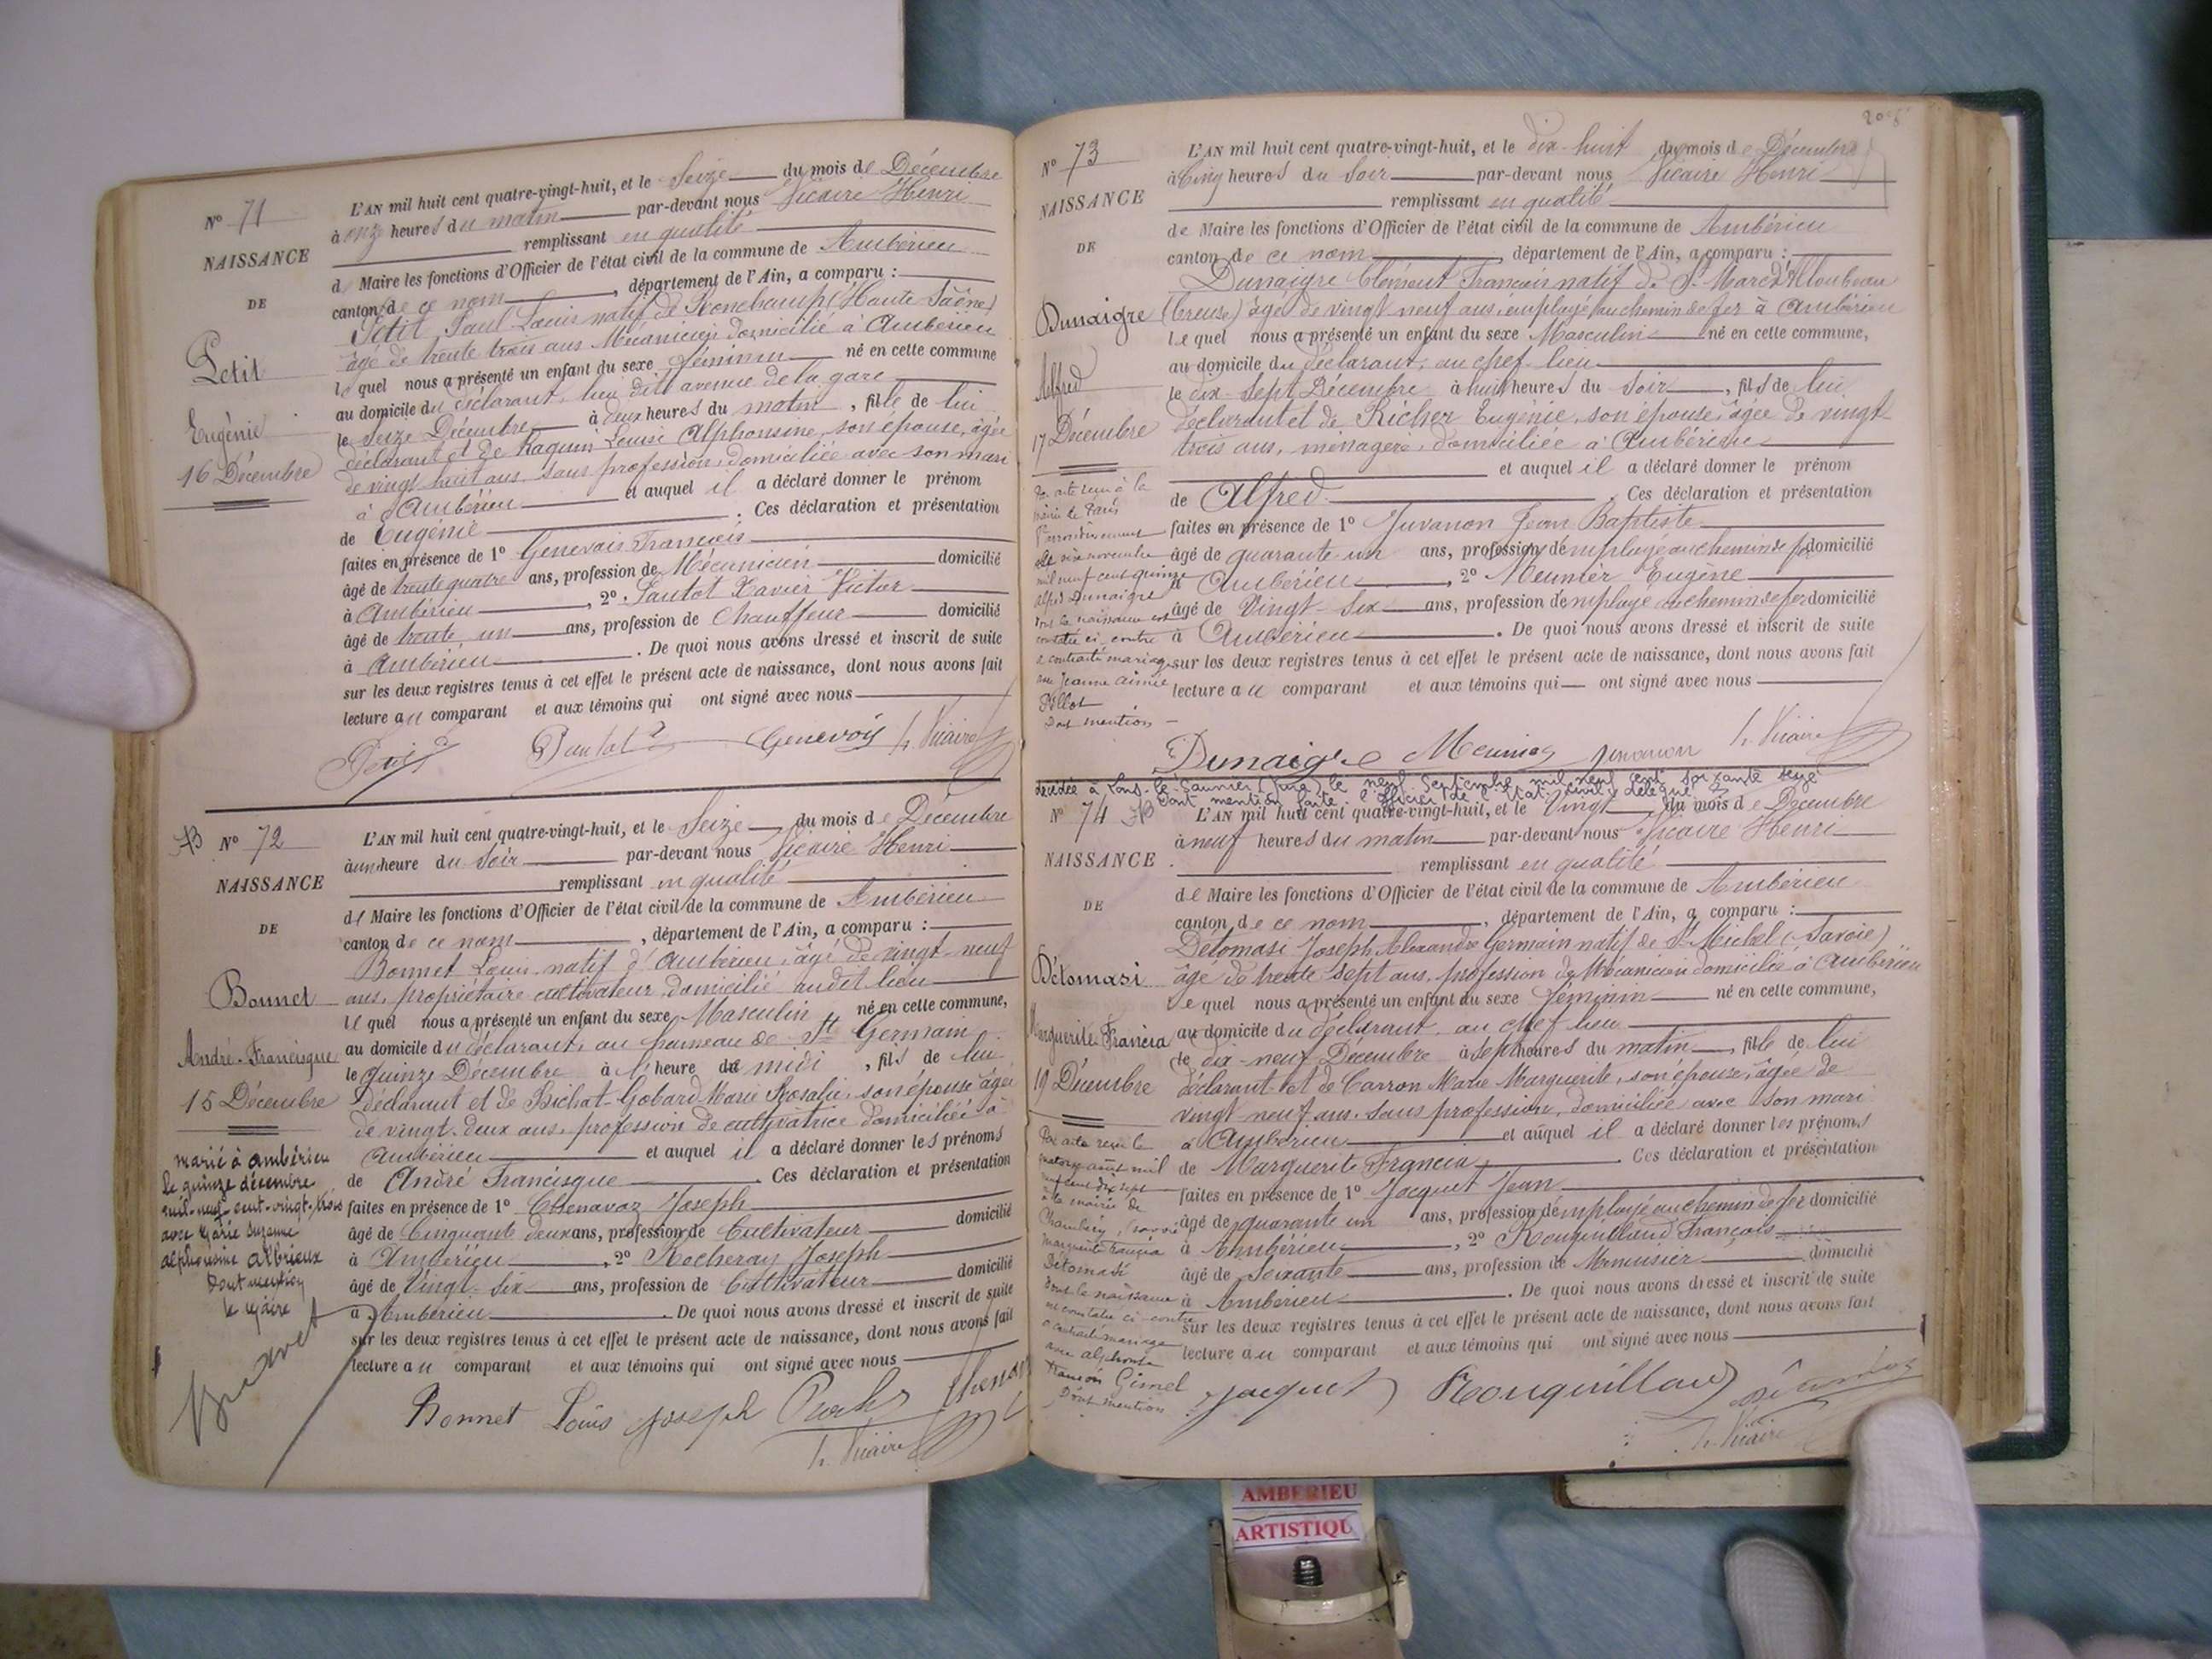 Nº 71
NAISSANCE
DE
Petit
Eugénie
16 Décembre
L'AN mil huit cent quatre-vingt-huit, et le Seize du mois de Décembre
à onze heures du matin par-devant nous Vicaire Henri
remplissant en qualité
de Maire les fonctions d'Officier de l'état civil de la commune de Ambérieu
canton de ce nom, département de l'Ain, a comparu :
Petit Paul Louis natif de Ronchamp (Haute Saône)
âgé de trente trois ans Mécanicien domicilié à Ambérieu
lequel nous a présenté un enfant du sexe féminin né en cette commune
au domicile du déclarant, lieu dit avenue de la gare
le Seize Décembre à deux heures du matin, fille de lui
déclarant et de Raguin Louise Alphonsine, son épouse, âgée
de vingt huit ans, sans profession, domiciliée avec son mari
à Ambérieu et auquel il a déclaré donner le prénom
de Eugénie. Ces déclaration et présentation
faites en présence de 1º Genevois François
âgé de trente quatre ans, profession de Mécanicien domicilié
à Ambérieu, 2º Pautot Xavier Victor
âgé de trente un ans, profession de Chauffeur domicilié
à Ambérieu. De quoi nous avons dressé et inscrit de suite
sur les deux registres tenus à cet effet le présent acte de naissance, dont nous avons fait
lecture au comparant et aux témoins qui ont signé avec nous
Petit Pautot Genevois h. Vicaire
Nº 72
NAISSANCE
DE
Bonnet
André-Francisque
15 Décembre
marié à ambérieu
le quinze décembre
mil-neuf-cent-vingt-trois
avec Marie Suzanne
alphonsine albrieux
Dont mention
le Maire
L'AN mil huit cent quatre-vingt-huit, et le Seize du mois de Décembre
à une heure du Soir par-devant nous Vicaire Henri
remplissant en qualité
de Maire les fonctions d'Officier de l'état civil de la commune de Ambérieu
canton de ce nom, département de l'Ain, a comparu :
Bonnet Louis, natif d'Ambérieu, âgé de vingt-neuf
ans, propriétaire cultivateur, domicilié audit lieu
lequel nous a présenté un enfant du sexe Masculin né en cette commune,
au domicile du déclarant, au hameau de St Germain
le quinze Décembre à l'heure de midi, fils de lui
déclarant et de Bichat-Gobard Marie Rosalie, son épouse âgée
de vingt-deux ans, profession de cultivatrice domiciliée à
Ambérieu et auquel il a déclaré donner les prénoms
de André Francisque. Ces déclaration et présentation
faites en présence de 1º Chenavaz Joseph
âgé de Cinquante deux ans, profession de Cultivateur domicilié
à Ambérieu, 2º Rocheray Joseph
âgé de Vingt-six ans, profession de Cultivateur domicilié
à Ambérieu. De quoi nous avons dressé et inscrit de suite
sur les deux registres tenus à cet effet le présent acte de naissance, dont nous avons fait
lecture au comparant et aux témoins qui ont signé avec nous
Bonnet Louis Joseph
h. Vicaire
Nº 73
NAISSANCE
DE
Dunaigre
Alfred
17 Décembre
Par acte reçu à la
mairie de Paris
mil neuf cent quinze
Alfred Dunaigre
dont la naissance est
constatée ci-contre
a contracté mariage
avec Jeanne Aimée
Pillot
Dont mention
L'AN mil huit cent quatre-vingt-huit, et le dix-huit du mois de Décembre
à Cinq heures du Soir par-devant nous Vicaire Henri
remplissant en qualité
de Maire les fonctions d'Officier de l'état civil de la commune de Ambérieu
canton de ce nom, département de l'Ain, a comparu :
Dunaigre Clément François natif de St Marc d'Alloubeau
(Creuse) âgé de vingt neuf ans, employé au chemin de fer à Ambérieu
lequel nous a présenté un enfant du sexe Masculin né en cette commune,
au domicile du déclarant, au chef-lieu
le dix-sept Décembre à huit heures du Soir, fils de lui
déclarant et de Richer Eugénie, son épouse, âgée de vingt
trois ans, ménagère, domiciliée à Ambérieu
et auquel il a déclaré donner le prénom
de Alfred. Ces déclaration et présentation
faites en présence de 1º Juvanon Jean Baptiste
âgé de quarante-un ans, profession d'employé au chemin de fer domicilié
à Ambérieu, 2º Meunier Eugène
âgé de Vingt-Six ans, profession d'employé au chemin de fer domicilié
à Ambérieu. De quoi nous avons dressé et inscrit de suite
sur les deux registres tenus à cet effet le présent acte de naissance, dont nous avons fait
lecture au comparant et aux témoins qui ont signé avec nous
Dunaigre Meunier Juvanon h. Vicaire
décédée à Lons-le-Saunier (Jura) le neuf Septembre mil neuf cent soixante seize
Dont mention faite. l'officier de l'état-civil délégué
Nº 74
NAISSANCE
DE
Détomasi
Marguerite Francia
19 Décembre
Par acte reçu le
quatorze août mil
neuf cent dix sept
à la mairie de
Chambéry, (Savoie)
Marguerite Francia
Détomasi
dont la naissance
est constatée ci-contre
a contracté mariage
avec Alphonse
François Gimel
Dont mention
L'AN mil huit cent quatre-vingt-huit, et le Vingt du mois de Décembre
à neuf heures du matin par-devant nous Vicaire Henri
remplissant en qualité
de Maire les fonctions d'Officier de l'état civil de la commune de Ambérieu
canton de ce nom, département de l'Ain, a comparu :
Détomasi Joseph Alexandre Germain natif de St Michel (Savoie)
âgé de trente sept ans, profession de Mécanicien domicilié à Ambérieu
lequel nous a présenté un enfant du sexe féminin né en cette commune,
au domicile du déclarant, au chef lieu
le dix-neuf Décembre à sept heures du matin, fille de lui
déclarant et de Carron Marie Marguerite, son épouse, âgée de
vingt neuf ans, sans profession, domiciliée avec son mari
à Ambérieu et auquel il a déclaré donner les prénoms
de Marguerite Francia. Ces déclaration et présentation
faites en présence de 1º Jacquet Jean
âgé de quarante un ans, profession d'employé au chemin de fer domicilié
à Ambérieu, 2º Rouquillaud François
âgé de Soixante ans, profession de Menuisier domicilié
à Ambérieu. De quoi nous avons dressé et inscrit de suite
sur les deux registres tenus à cet effet le présent acte de naissance, dont nous avons fait
lecture au comparant et aux témoins qui ont signé avec nous
Jacquet Rouquillaud
h. Vicaire
AMBERIEU
ARTISTIQU